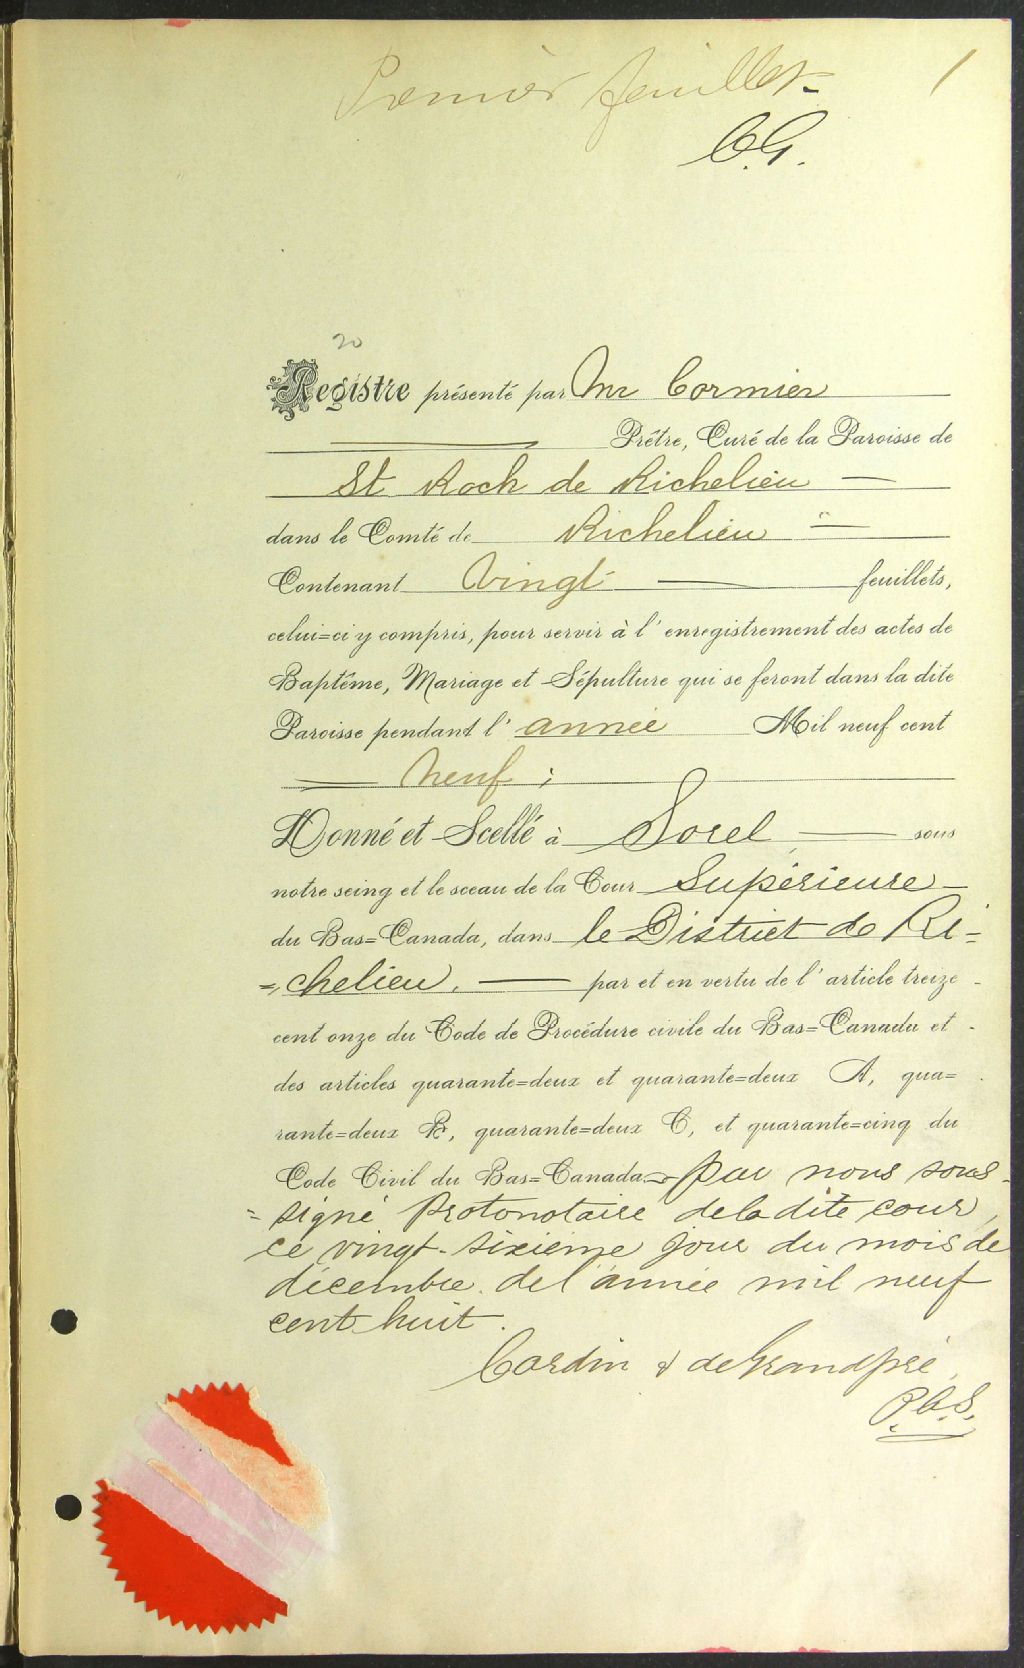 Premier feuillet 1
C.G.
20
Registre présenté par Mr Cormier
Prêtre, Curé de la Paroisse de
St Roch de Richelieu
dans le Comté de Richelieu
Contenant Vingt feuillets,
celui=ci y compris, pour servir à l'enregistrement des actes de
Baptême, Mariage et Sépulture qui se feront dans la dite
Paroisse pendant l'année Mil neuf cent
Neuf ;
Donné et Scellé à Sorel sous
notre seing et le sceau de la Cour Supérieure
du Bas=Canada, dans le District de Ri=
=chelieu. par et en vertu de l'article treize
cent onze du Code de Procédure civile du Bas=Canada et
des articles quarante=deux et quarante=deux A, qua=
rante=deux B, quarante=deux C, et quarante=cinq du
Code Civil du Bas=Canada par nous sous-
=signé Protonotaire de la dite cour,
ce vingt-sixième jour du mois de
décembre de l'année mil neuf
cent huit.
Cardin & deGrandpré,
P.C.S.